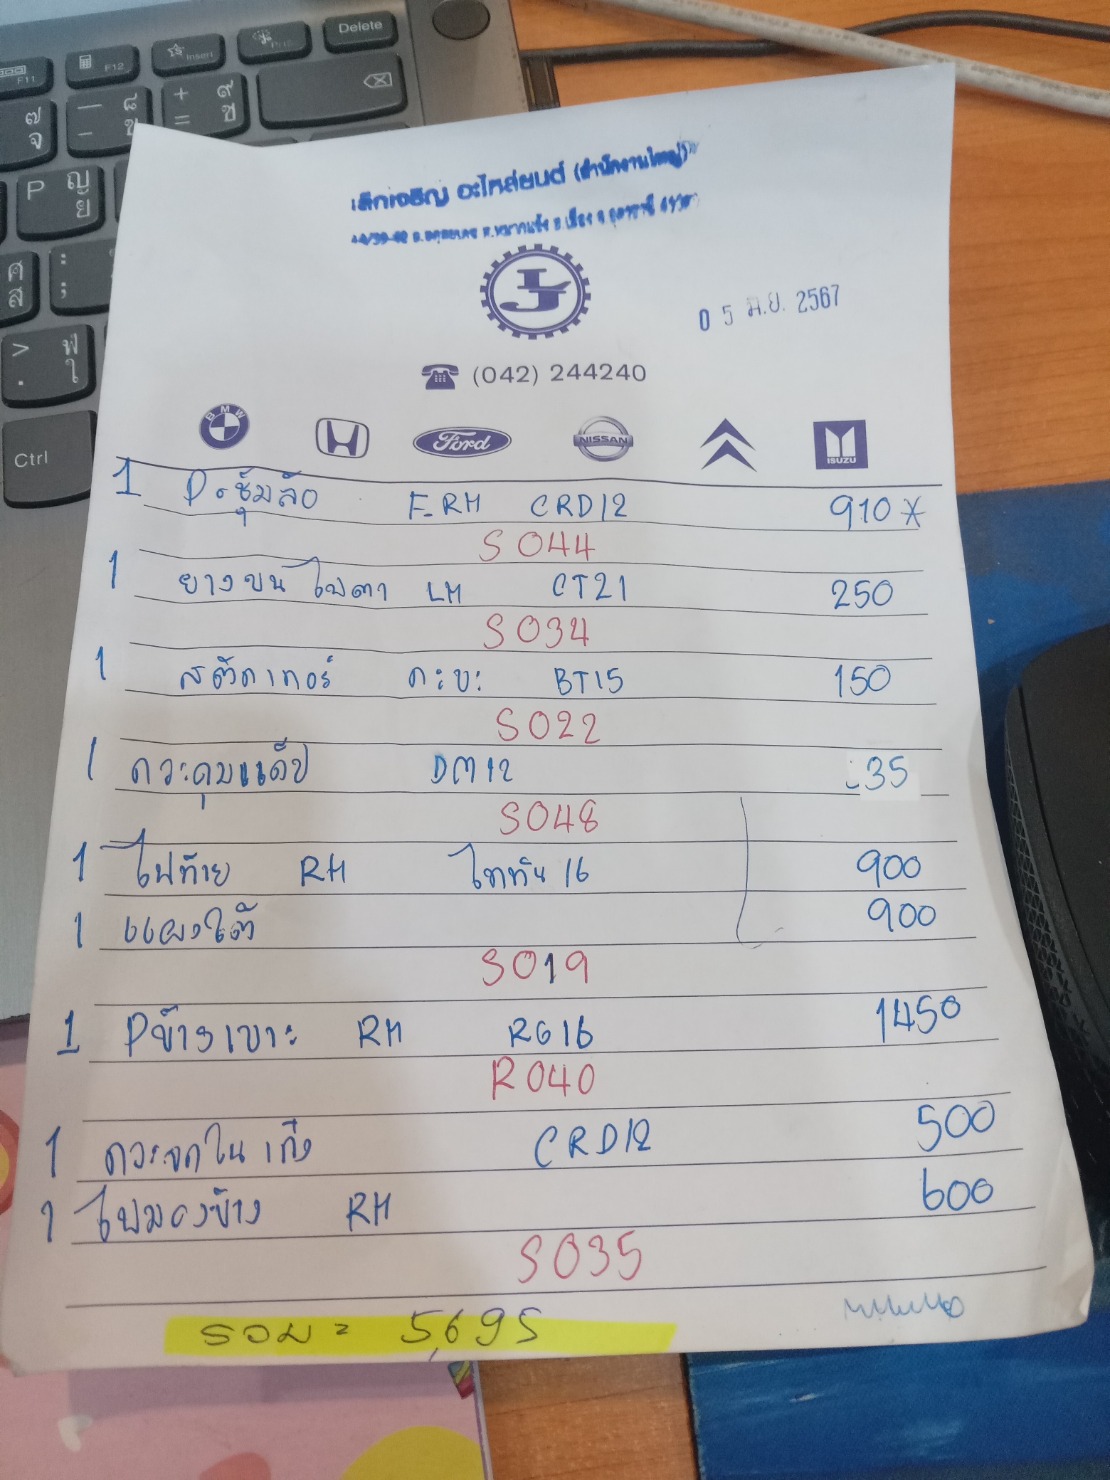 เลิกเจริญ อะไหล่ยนต์ (สำนักงานใหญ่)
0 5 มิ.ย. 2567
(042) 244240
BMW
Ford
NISSAN
ISUZU
1 P.ซุ้มล้อ F.RH CRD12 910 *
S044
1 ยางขน ไฟตา LH CT21 250
S034
1 สตัดเทอร์ กะบะ BT15 150
S022
1 DM12 35
S048
1 ไฟท้าย RH ไททัน 16 900
1 แผงใต้ 900
S019
1 Pข้างเบาะ RH RG16 1450
R040
1 กระจกใน เก๋ง CRD12 500
1 ไฟมองข้าง RH 600
S035
รวม = 5,695
Delete
F11
F12
Insert
P
Ctrl